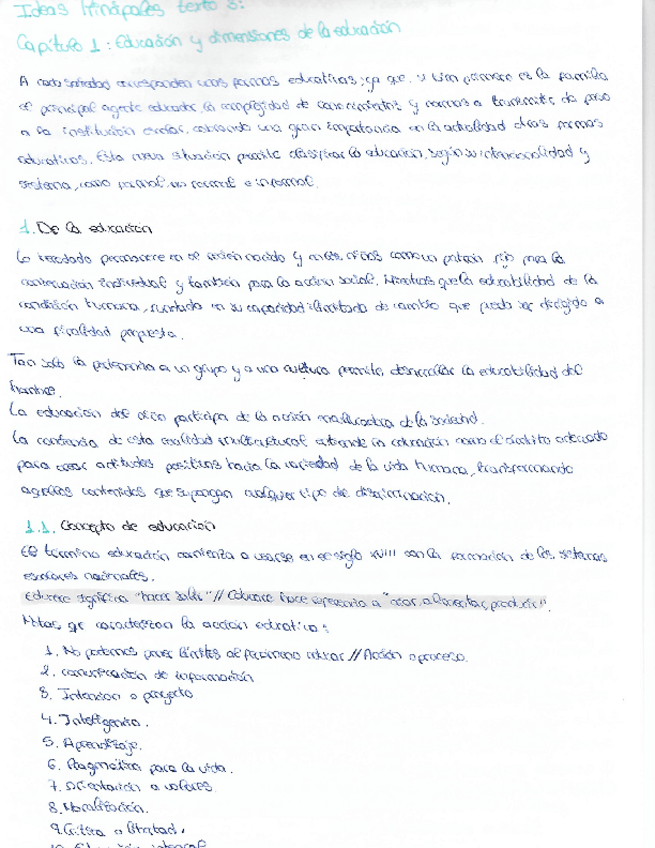 Ideas Principales texto 3:
Capítulo 1: Educación y dimensiones de la educación
A cada sociedad corresponden unas formas educativas, ya que, si bien primero es la familia
el principal agente educador, la complejidad de conocimientos y normas a transmitir da paso
a la institución escolar, cobrando una gran importancia en la actualidad otras formas
educativas. Esta nueva situación permite clasificar la educación, según su intencionalidad y
sistema, como formal, no formal e informal.
1. De la educación
Lo heredado permanece en el recién nacido y más como un patrón fijo para la
individual y también para la acción social. Mientras que la educabilidad de la
condición humana, fundada en su capacidad ilimitada de cambio que puede ser dirigido a
una finalidad propuesta.
Tan solo la pertenencia a un grupo y a una cultura permite desarrollar la educabilidad del
hombre.
La educación del participa de la acción de la sociedad.
La de esta realidad multicultural entiende la educación como el ámbito adecuado
para crear actitudes positivas hacia la variedad de la vida humana, transformando
aquellos contenidos que supongan cualquier tipo de discriminación.
1.1. Concepto de educación
El término educación comienza a usarse en el siglo XVIII con la formación de los sistemas
escolares nacionales.
Educere significa "hacer salir" // Educare hace referencia a "criar, alimentar, producir".
Notas qe caracterizan la acción educativa:
1. No podemos poner límites al fenómeno educar // Acción o proceso.
2. comunicación de información
3. Intención o proyecto
4. Inteligencia.
5. Aprendizaje.
6. Pragmática para la vida.
7. Orientación a valores
8. Moralización.
9. Crítica o libertad.